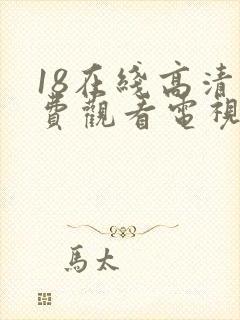 18在綫高清
費觀看電視
馬太